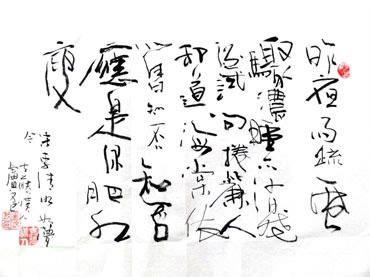 昨夜雨疏风
驟濃睡不消殘
酒試问捲簾人
却道海棠依
舊知否知否
應是绿肥红
瘦
宋李清照如夢
令